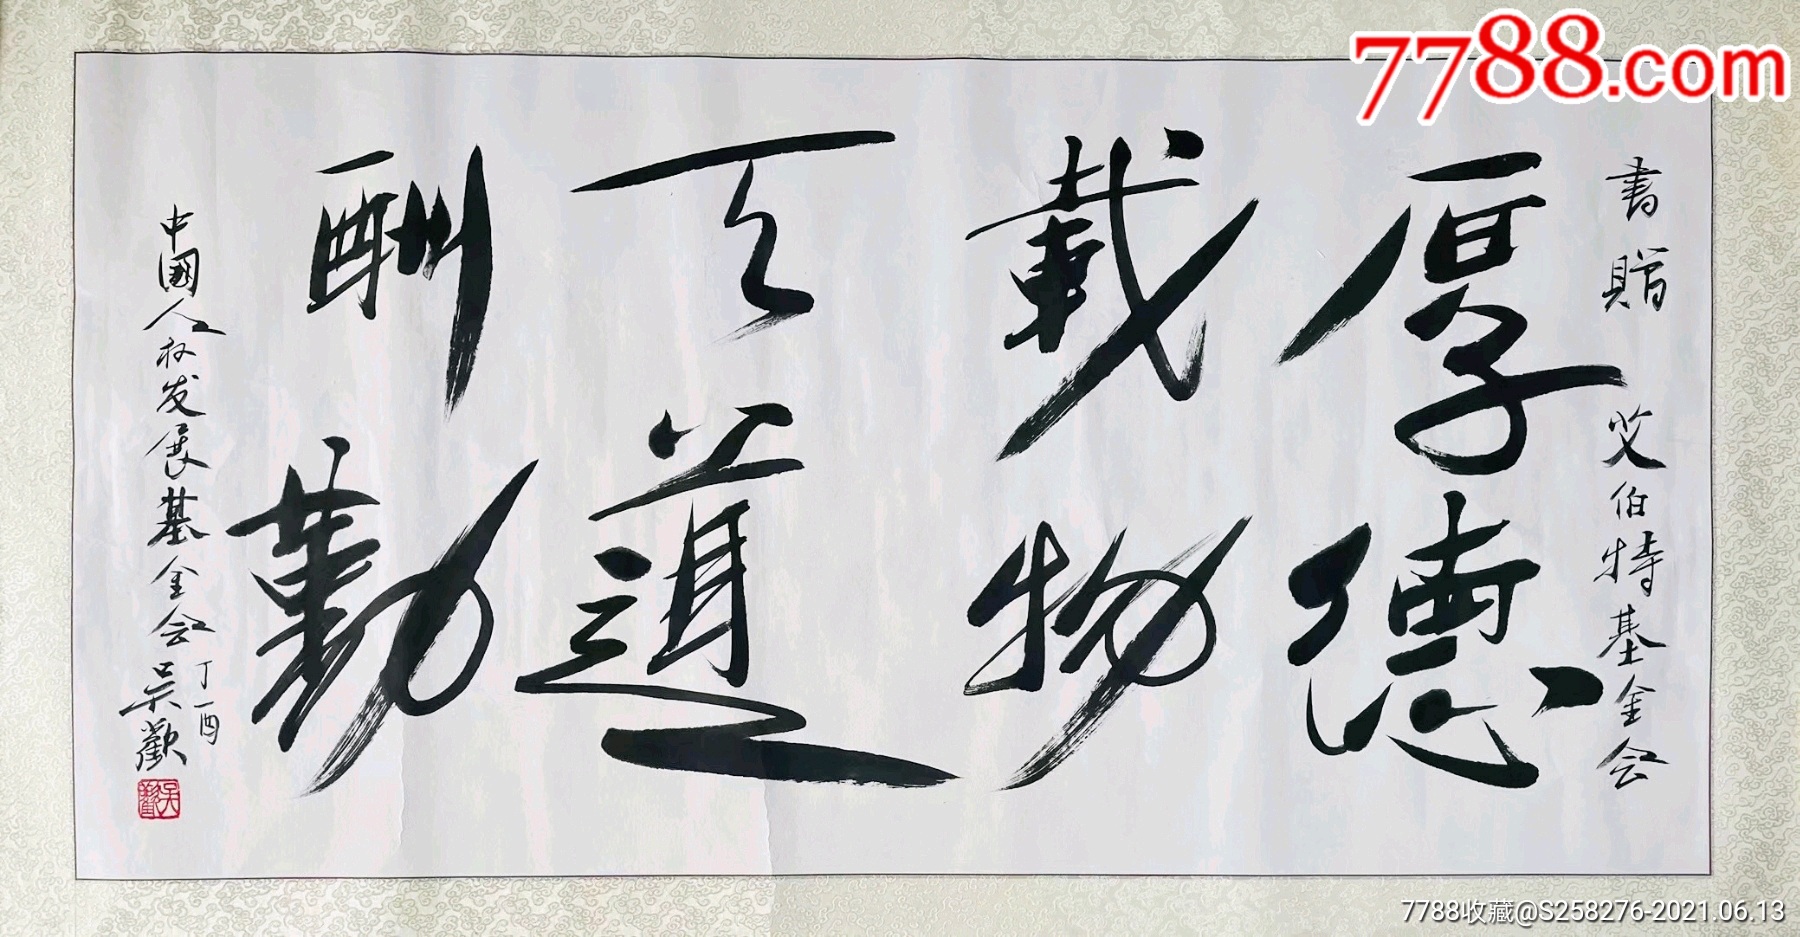 7788.com
書贈 艾伯特基金会
厚德
載物
天道
酬勤
中國人权发展基金会
丁酉
吴歡
吴歡
7788收藏@S258276-2021.06.13